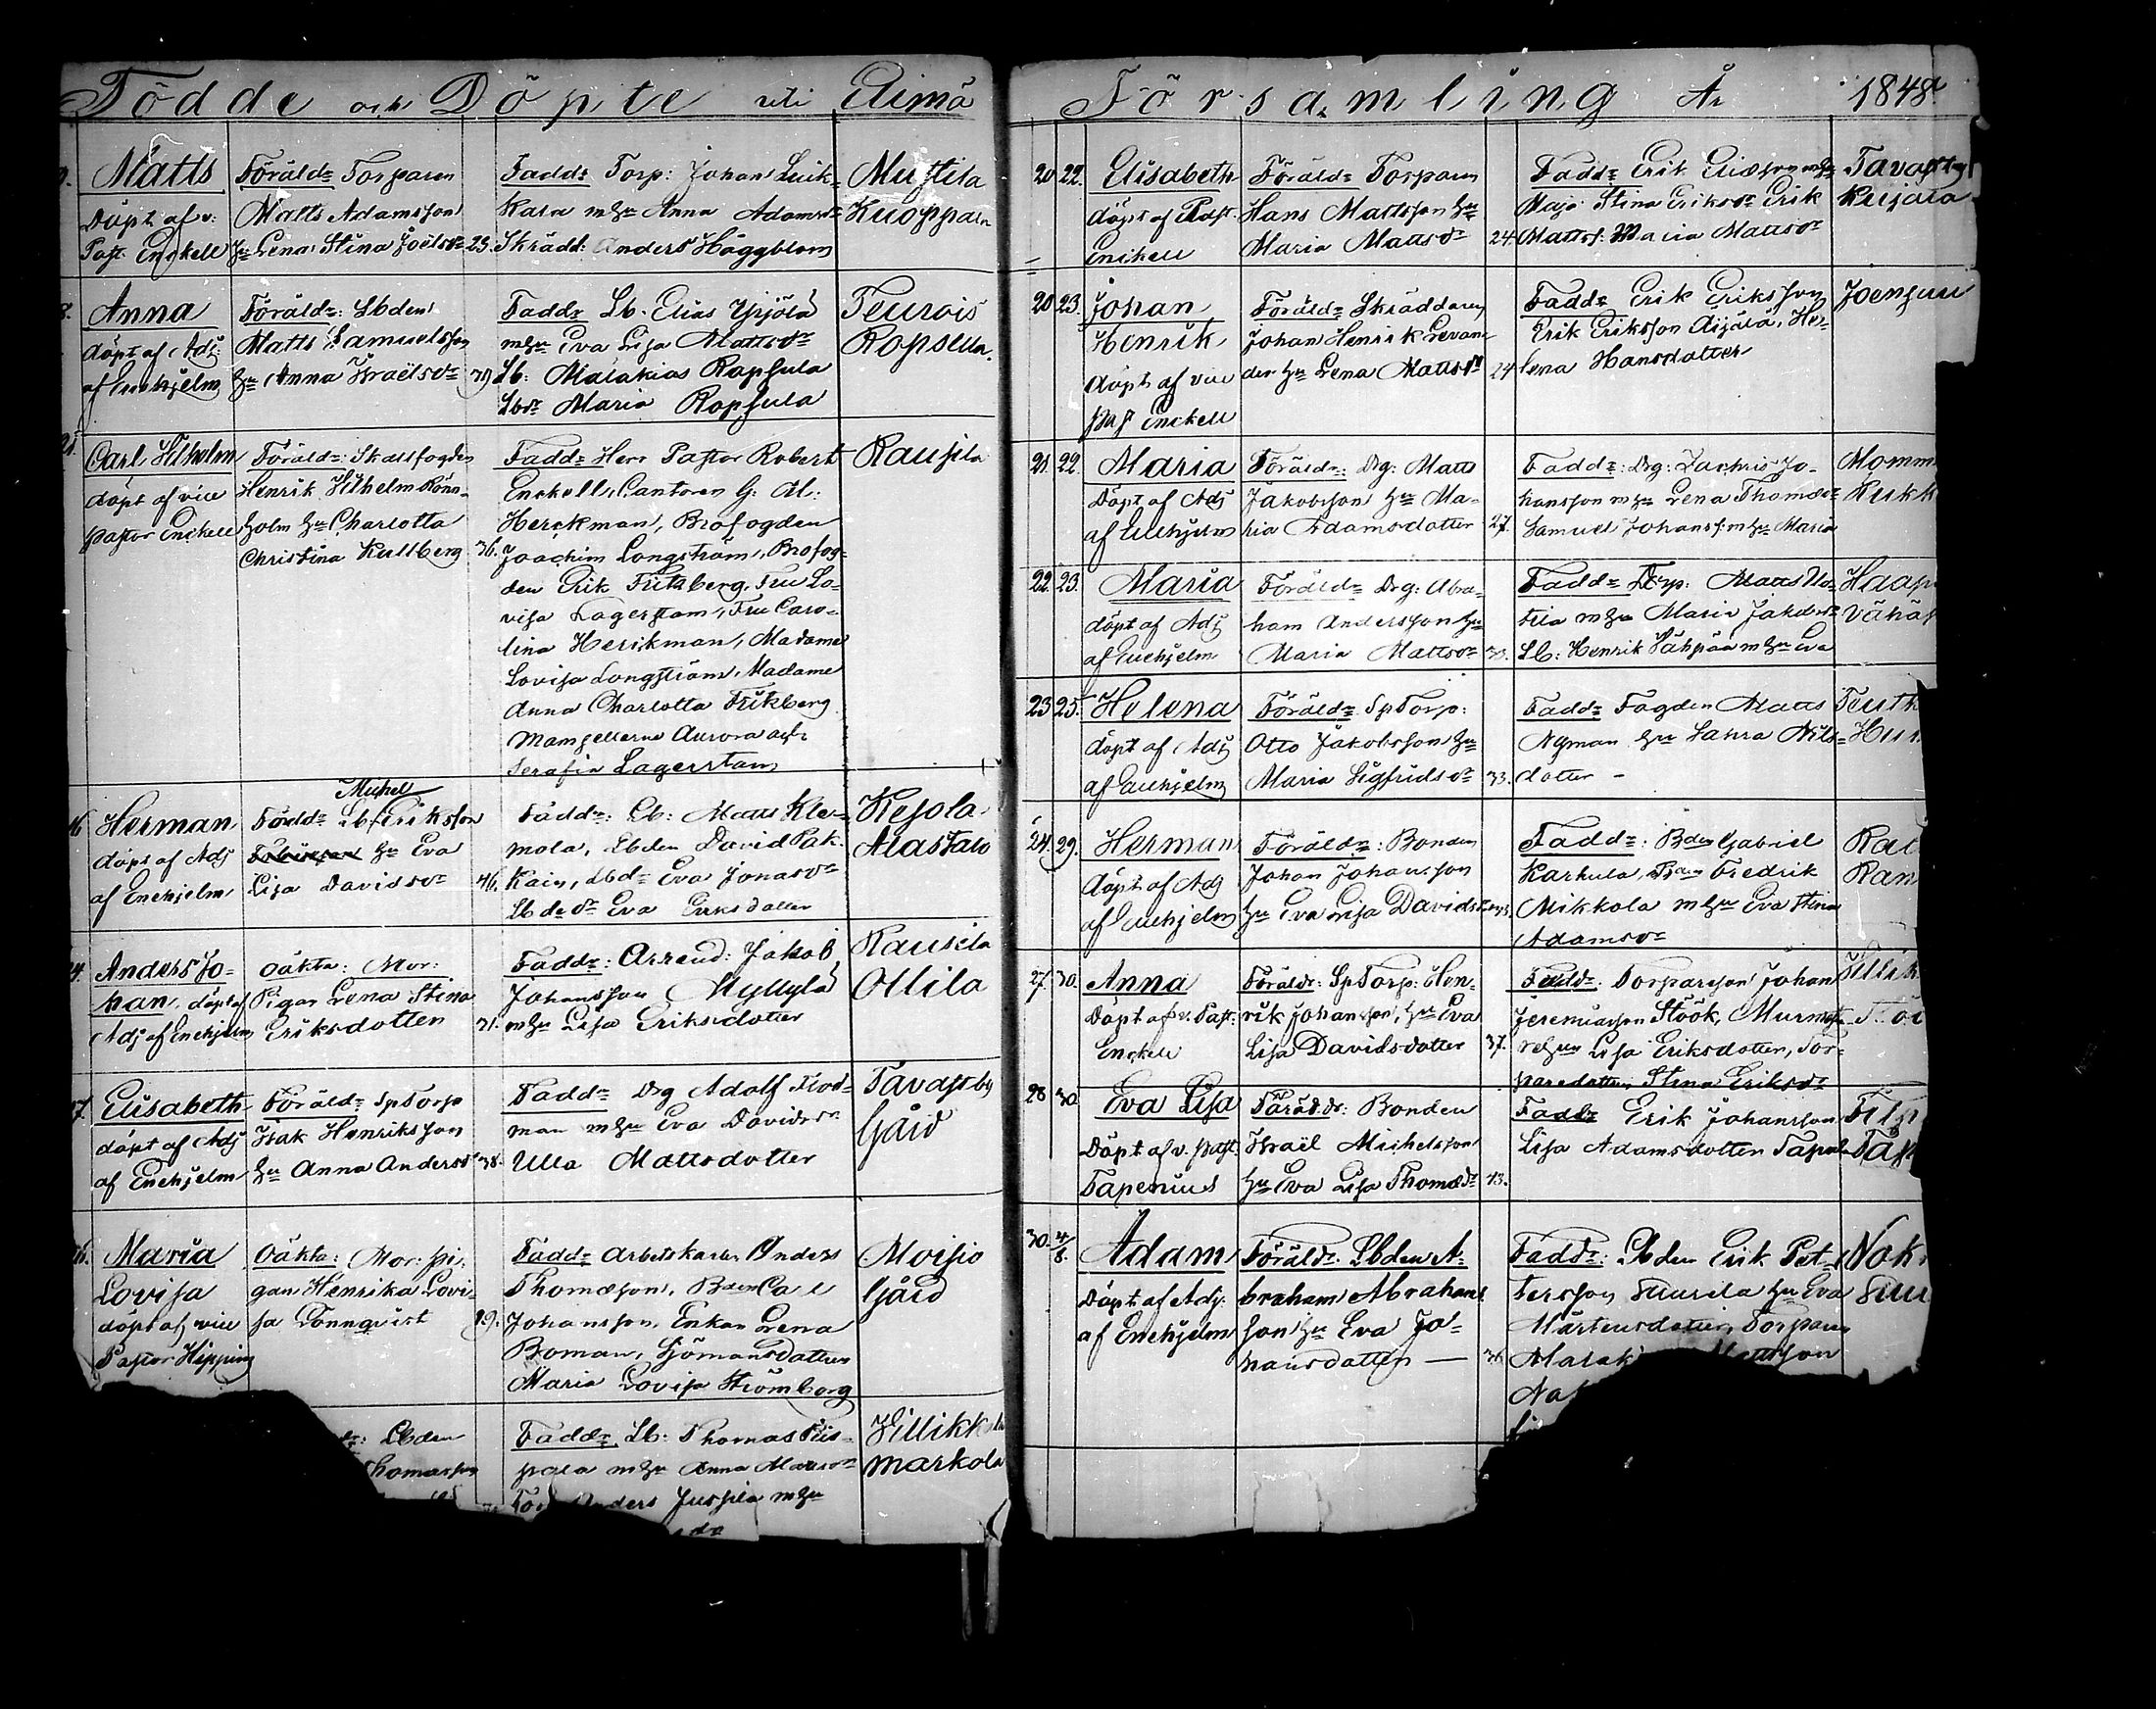 Födde och Döpte uti Elimä
Matts
Döpt af v:
Past. Enckell
Föräldr Torparen
Matts Adamsson
hu Lena Stina Joëlsdr 25.
Faddr Torp: Johan Leik-
kara m hu Anna Adamsdr
Skrädd: Anders Häggblom
Mustila
Kuoppala
Anna
döpt af Adj:
af Enehjelm
Föräldr: Lbden
Matts Samuelsson
hu Anna Israëlsdr 39
Faddr Lb. Elias Yrjölä
m hu Eva Lisa Mattsdr
Lb: Malakias Ropsula
Lbdr Maria Ropsula
Teurois
Ropsula.
Carl Vilhelm
döpt af vice
pastor Enckell
Föräldr: Skattfogden
Henrik Vilhelm Rönn-
holm hu Charlotta
Christina Kullberg 36.
Faddr Herr Pastor Robert
Enckell, Cantoren G: Al:
Herckman, Brofogden
Joachim Longström, Brofog-
den Erik Frikberg, Fru Lo-
visa Lagerstam, Fru Caro-
lina Herckman, Madame
Lovisa Longström, Madame
Anna Charlotta Frikberg
Mamsellerne Aurora och
Serafia Lagerstam
Raussila
Herman
döpt af Adj
af Enehjelm
Michel
Föräldr Lb Eriksson
hu Eva
Lisa Davidsdr 46.
Faddr: Lb: Matts Kle-
mola, Lbden David Pak-
kain, Lbdr Eva Jonasdr
Lbdedr Eva Eriksdotter
Kejsola
Alastalo
Anders Jo-
han, döpt af
Adj af Enehjelm
Oäkta: Mor:
Pigan Lena Stina
Eriksdotter 31.
Faddr: Arrend: Jakob
Johansson Myllylä
m hu Lisa Eriksdotter
Rausila
Ollila
Elisabeth
döpt af Adj
af Enehjelm
Föräldr SpTorp
Isak Henriksson
hu Anna Andersdr 38.
Faddr Drg Adolf Flod-
man m hu Eva Davidsdr
Ulla Mattsdotter
Tavastby
Gård
Maria
Lovisa
döpt af vice
Pastor Hipping
Oäkta: Mor: pi-
gan Henrika Lovi-
sa Lönnqvist 19.
Faddr Arbetskarlen Anders
Thomasson, Bden Carl
Johansson, Enkan Lena
Boman, Sjömansdottren
Maria Lovisa Strömborg
Moisio
Gård
Lbden
Thomasson
Faddr Lb: Thomas Piis-
pala m hu Anna Mattsdr
Anders Jussila m hu
Villikkala
Markola
Församling År 1848.
20 22. Elisabeth
döpt af Past.
Enckell
Föräldr Torparen
Hans Mattsson hu
Maria Mattsdr 24
Faddr Erik Ericsson m hu
Maja Stina Eriksdr Erik
Mattss. Maria Mattsdr
Tavastby
20 23. Johan
Henrik
döpt af vice
past Enckell
Föräldr Skräddaren
Johan Henrik Levan-
der hu Lena Mattsdr 24
Faddr Erik Eriksson
Erik Eriksson Äijälä, He-
lena Hansdotter
Joensuu
21. 22. Maria
Döpt af Adj
af Enehjelm
Föräldr: Drg: Matts
Jakobsson hu Ma-
ria Adamsdotter 27.
Faddr: Drg: Zachris Jo-
hansson m hu Lena Thomasdr
Samuel Johanss: m hu Maria
Momm
Kukk
22. 23. Maria
döpt af Adj
af Enehjelm
Föräldr Drg: Abra-
ham Andersson hu
Maria Mattsdr
Faddr Torp: Matts
m hu Maria Jakobsdr
Lb: Henrik Vähpää m hu Eva
Haap
Vähä
23 25. Helena
döpt af Adj
af Enehjelm
Föräldr SpTorp:
Otto Jakobsson hu
Maria Sigfridsdr 33.
Faddr Fogden Matts
Nyman hu Sahra Nils-
dotter -
24. 29. Herman
döpt af Adj
af Enehjelm
Föräldr: Bonden
Johan Johansson
hu Eva Lisa Davidsdr
Faddr: Bden Gabriel
Karhula, Bden Fredrik
Mikkola m hu Eva Stina
Adamsdr
Rau
Ran
27. 30. Anna
Döpt af v. Past:
Enckell
Föräldr: SpTorp: Hen-
rik Johansson, hu Eva
Lisa Davidsdotter 37.
Faddr: Torparson Johan
Jeremiasson Stöök, Murmäst-
re hu Lisa Eriksdotter, Tor-
paredottren Stina Eriksdr
28 30 Eva Lisa
Döpt af v. past.
Tapenius
Föräldr: Bonden
Israël Michelsson
hu Eva Lisa Thomædr 43.
Faddr Erik Johansson
Lisa Adamsdotter
30. 4/8. Adam
Döpt af Adj.
af Enehjelm
Föräldr. Lbden A-
braham Abrahams
son hu Eva Jo-
hansdotter — 36
Faddr: Lbden Erik Pet-
tersson Suurila hu Eva
Mårtensdotter, Torparen